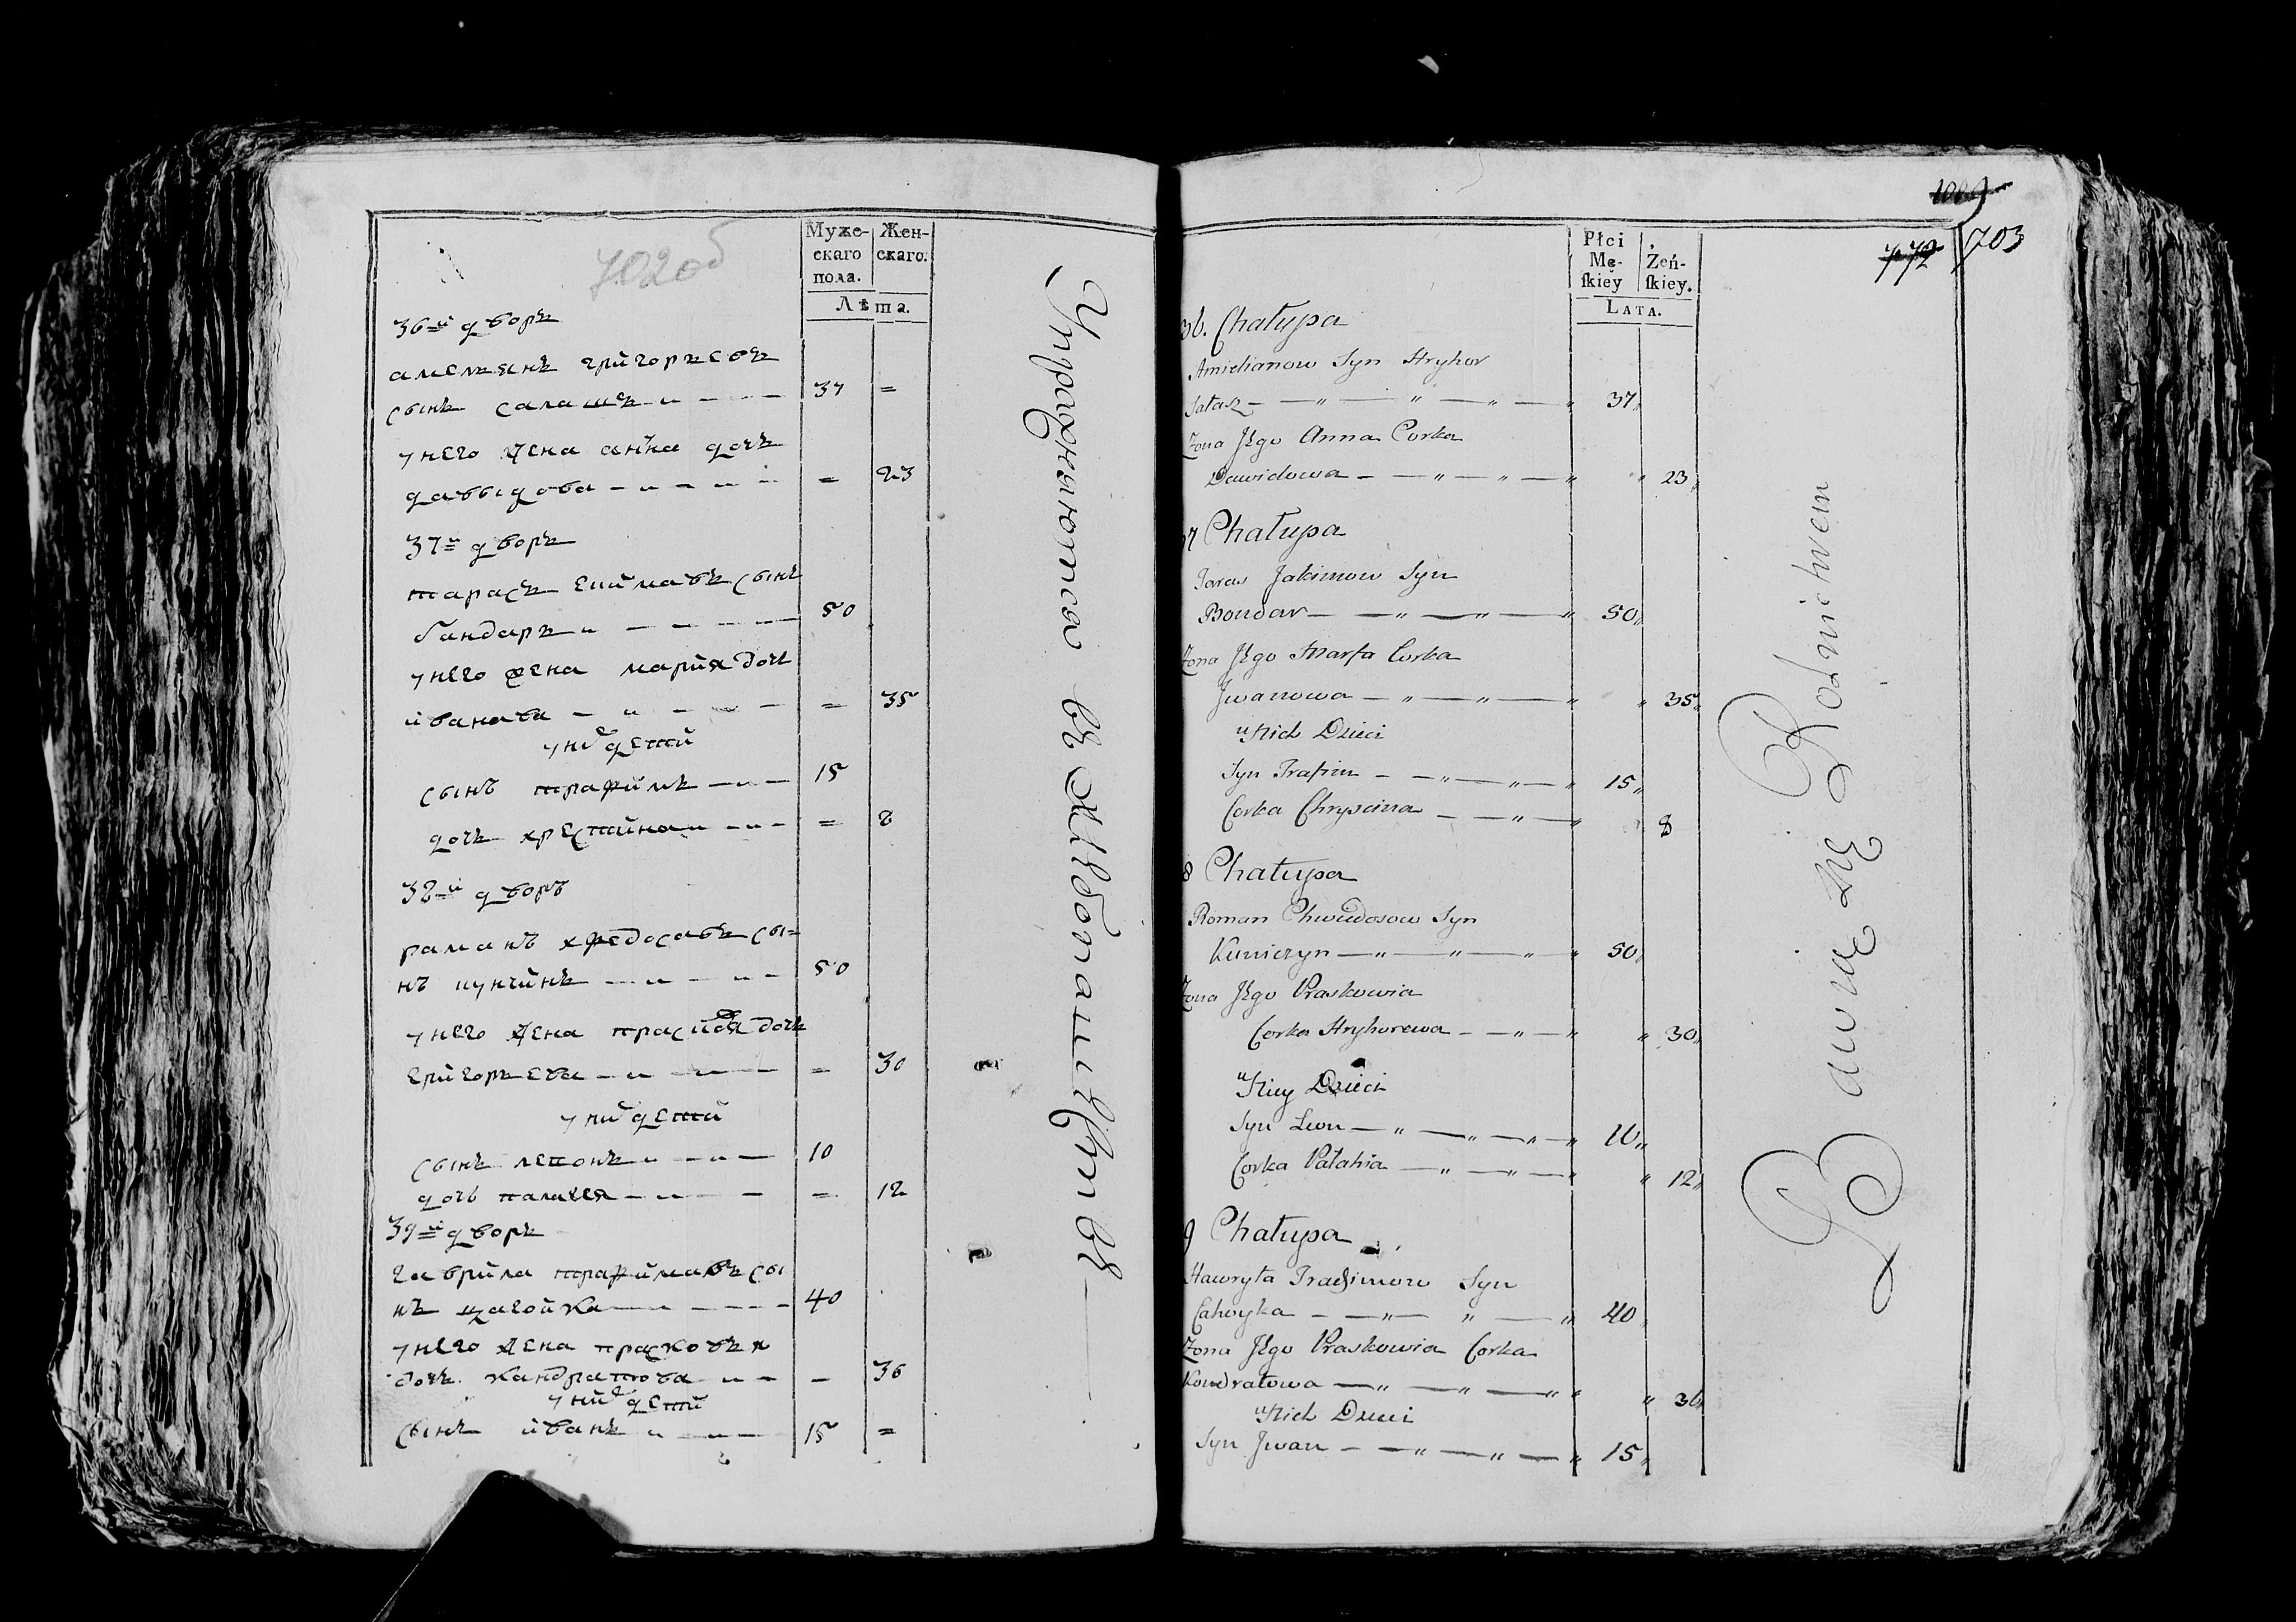 702об
Муже-
скаго
пола.
Жен-
скаго.
Лѣта.
36й дворъ
амельянъ григорьевъ
сынъ салашъ 37 =
у него жена анна дочь
давыдова = 23
37й дворъ
тарасъ екимавъ сынъ
бандаръ 50
у него жена мария дочь
иванава = 35
у них дети
сынъ трафимъ 15
дочь хрестина = 8
38й дворъ
раманъ хведосавъ сы=
нъ кунчинъ 50
у него жена дочь
григорьева = 30
у них дети
сынъ левонъ 10
дочь палагея = 12
39й дворъ
гаврила трафимавъ сы
нъ цагойка 40
у него жена прасковья
дочь кандратова - 36
у них дети
сынъ иванъ 15 =
Упражняются въ Хлѣбопашествѣ
1009
772 703
Płci
Mę-
skiey
Żeń-
skiey.
LATA.
36. Chałupa
Amielianow Syn Hryhor
Sałasz 37
Zona Jego Anna Corka
Dawidowa 23
37 Chałupa
Taras Jakimow Syn
Bondar 50
Zona Jego Marfa Corka
Jwanowa 35
u Nich Dzieci
Syn Trafim 15
Corka Chryscina 8
8 Chałupa
Roman Chwiedosow Syn
Kuniczyn 50
Zona Jego Praskowia
Corka Hryhorewa 30
u Niey Dzieci
Syn Leon 10
Corka Pałahia 12
9 Chałupa
Hawryła Trafimow Syn
Cahoyka 40
Zona Jego Praskowia Corka
Kondratowa 36
u Nich Dzieci
Syn Jwan 15
Bawią się Rolnictwem